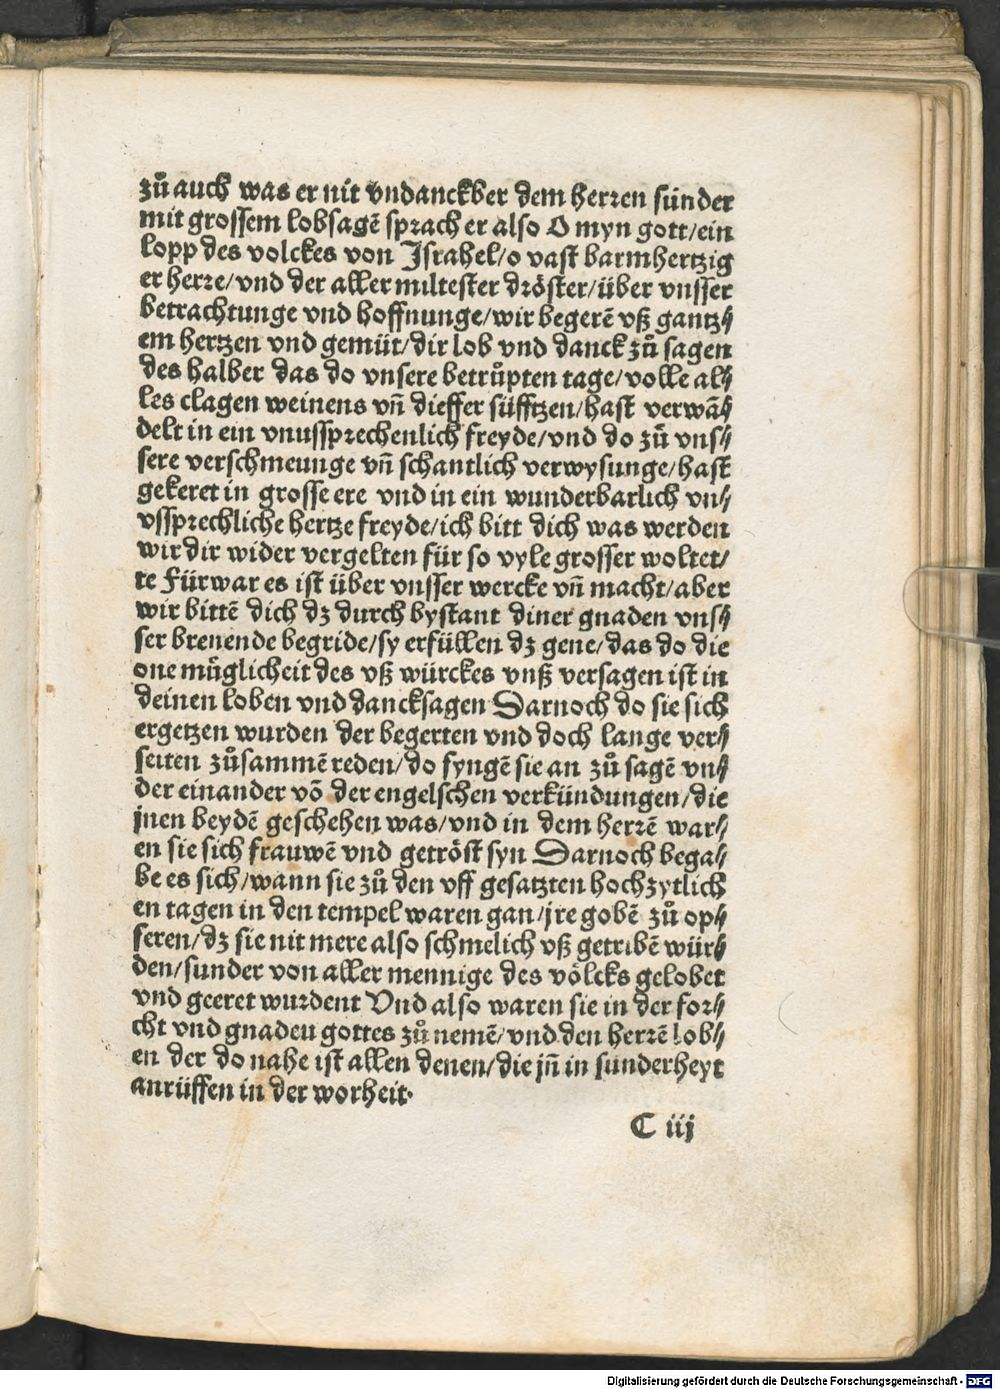 zů auch was er nit vndanckber dem herren sunder
mit grossem lobsagē sprach er also O myn gott/ein
lopp des volckes von Israhel/o vast barmhertzig
er herre/vnd der aller miltester dröster/über vnsser
betrachtunge vnd hoffnunge/wir begerē vß gantz⸗
em hertzen vnd gemüt/dir lob vnd danck zů sagen
des halber das do vnsere betrůpten tage/volle al⸗
les clagen weinens vñ dieffer süfftzen/hast verwā⸗
delt in ein vnussprechenlich freyde/vnd do zů vns⸗
sere verschmeunge vñ schantlich verwysunge/hast
gekeret in grosse ere vnd in ein wunderbarlich vn⸗
vssprechliche hertze freyde/ich bitt dich was werden
wir dir wider vergelten für so vyle grosser woltet/
te Fürwar es ist über vnsser wercke vñ macht/aber
wir bittē dich dz durch bystant diner gnaden vns⸗
ser brenende begride/sy erfüllen dz gene/das do die
one müglicheit des vß würckes vnß versagen ist in
deinen loben vnd dancksagen Darnoch do sie sich
ergetzen wurden der begerten vnd doch lange ver⸗
seiten zůsammē reden/do syngē sie an zů sagē vn⸗
der einander vō der engelschen verkündungen/die
jnen beydē geschehen was/vnd in dem herrē war⸗
en sie sich frauwē vnd getröst syn Darnoch bega⸗
be es sich/wann sie zů den vff gesatzten hochzytlich
en tagen in den tempel waren gan/jre gobē zů op⸗
feren/dz sie nit mere also schmelich vß getribē wür⸗
den/sunder von aller mennige des völcks gelobet
vnd geeret wurdent Vnd also waren sie in der for⸗
cht vnd gnadeu gottes zů nemē/vnd den herrē lob⸗
en der do nahe ist allen denen/die jñ in sunderheyt
anrüffen in der worheit·
C iij
Digitalisierung gefördert durch die Deutsche Forschungsgemeinschaft - DFG